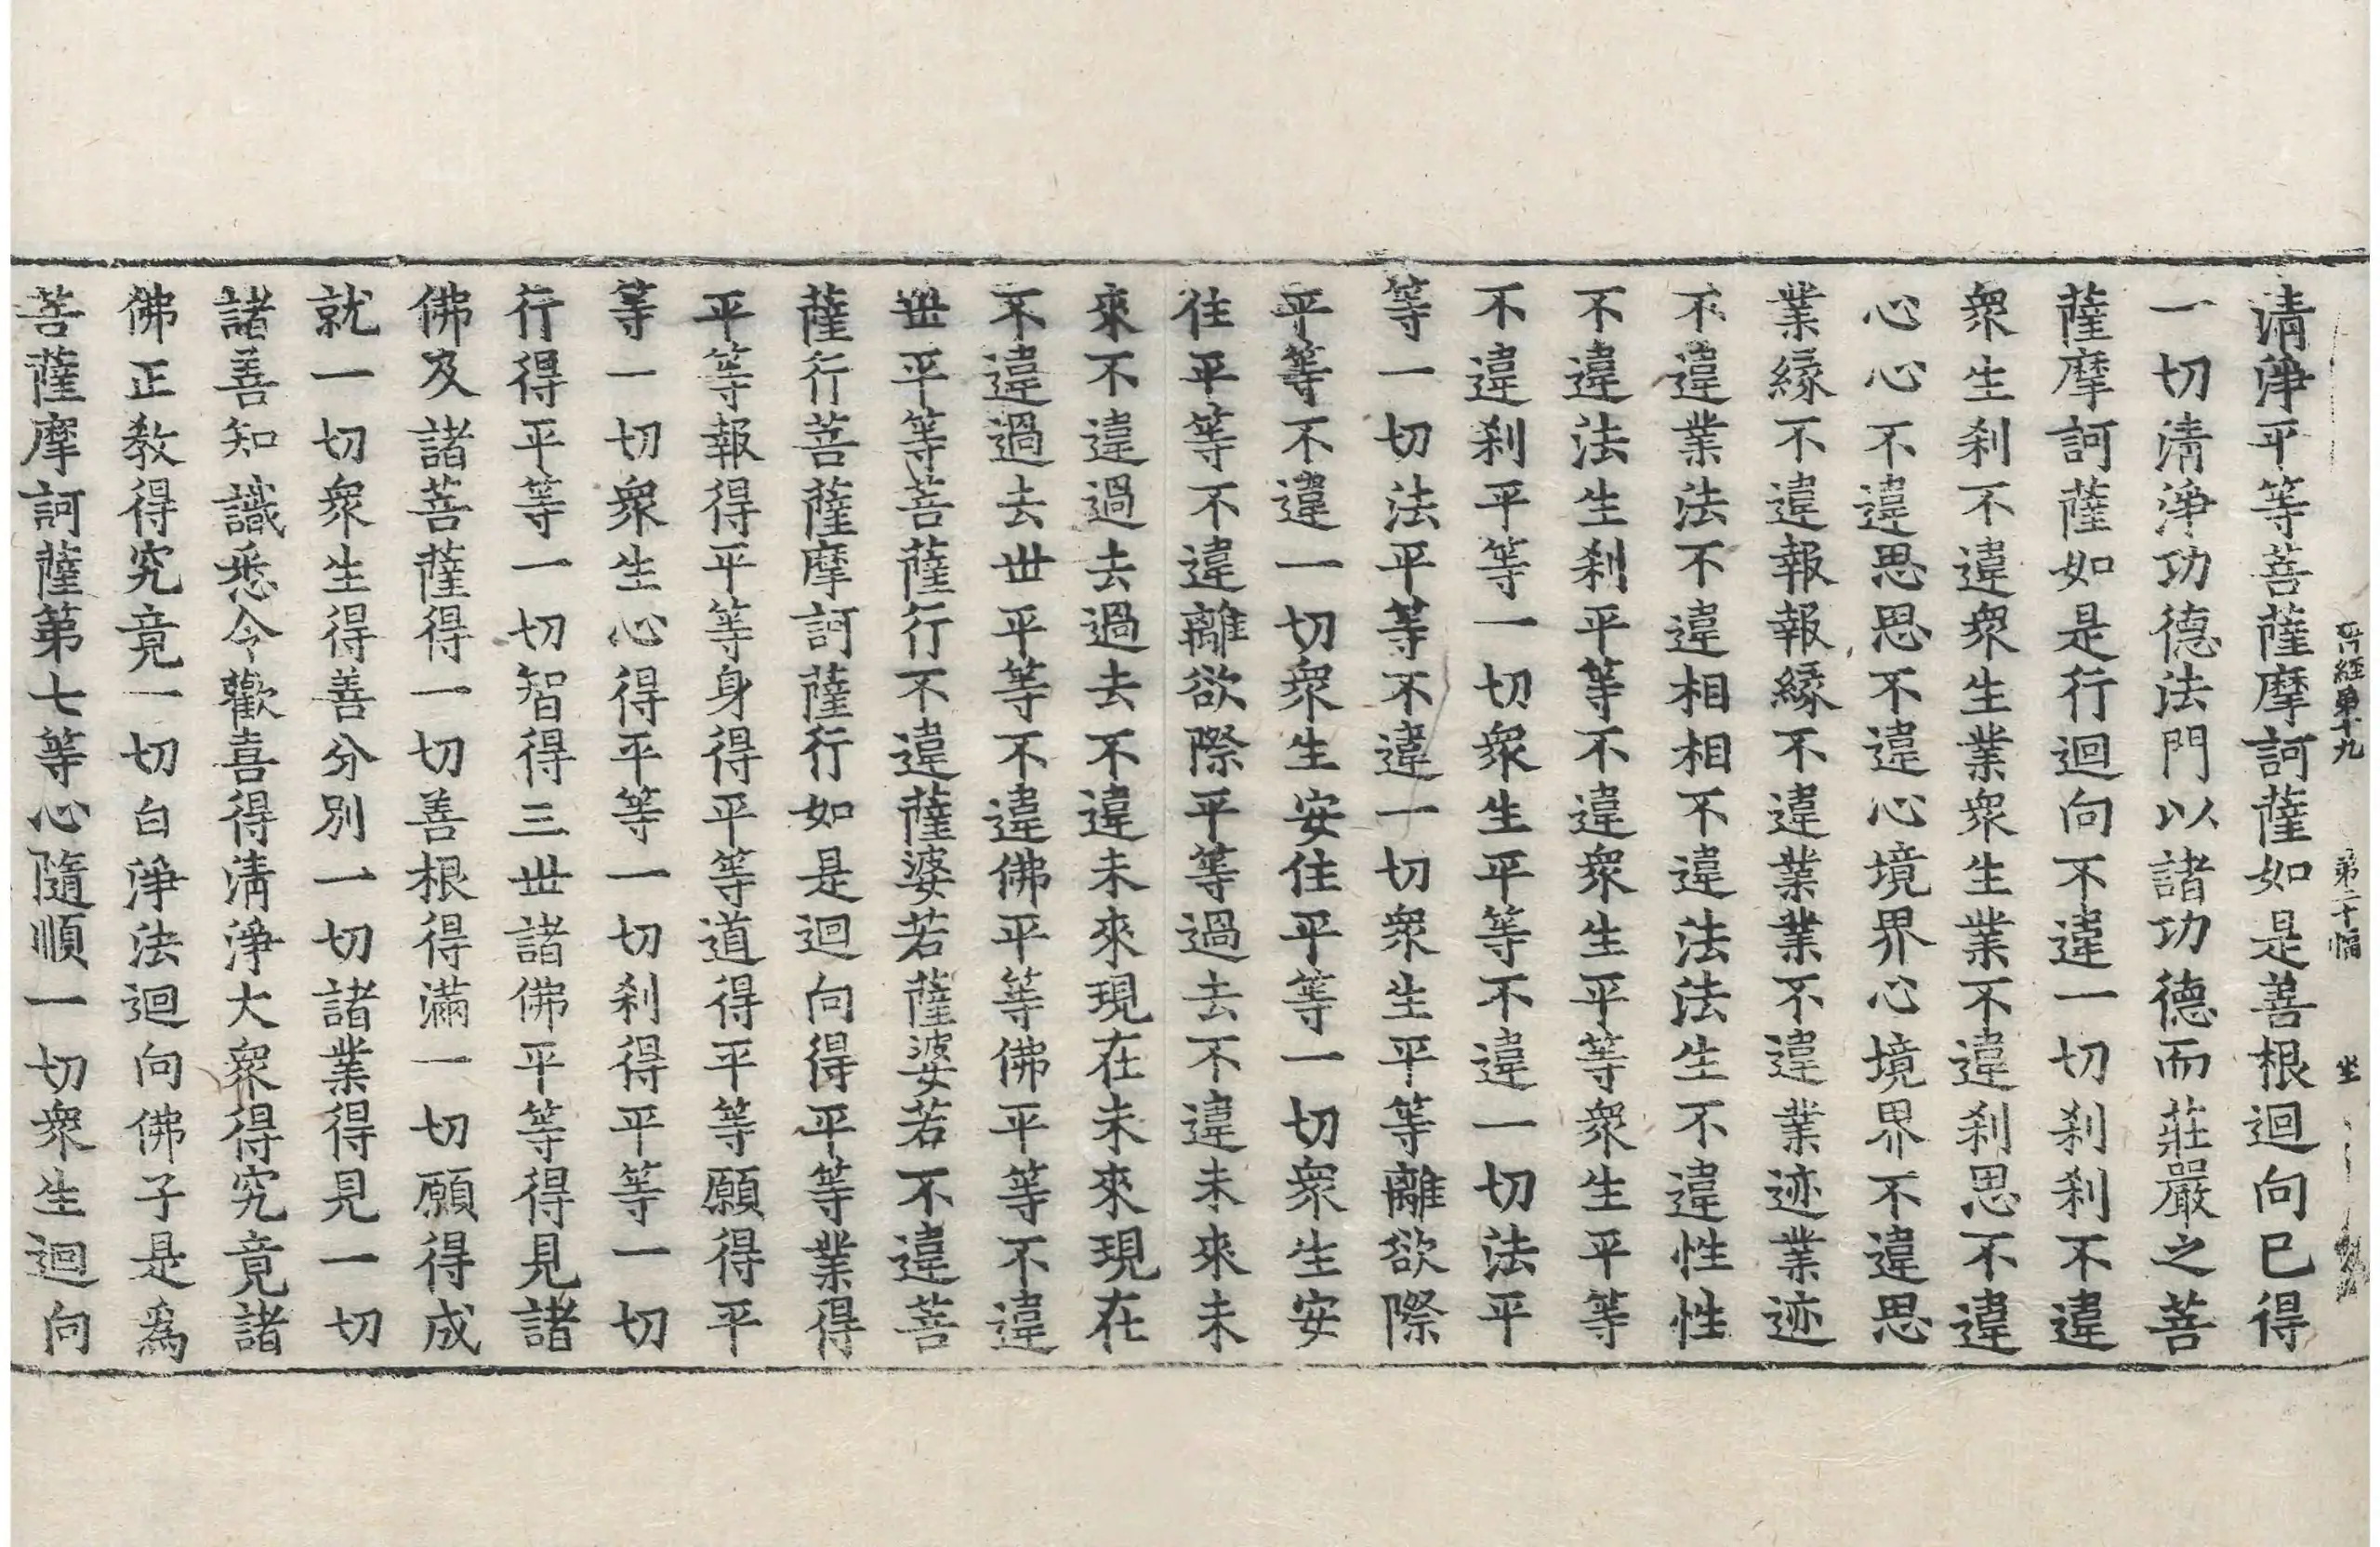 晉經第十九　第二十幅　坐
清淨平等菩薩摩訶薩如是善根迴向已得
一切清淨功德法門以諸功德而莊嚴之菩
薩摩訶薩如是行迴向不違一切刹刹不違
衆生刹不違衆生業衆生業不違刹思不違
心心不違思思不違心境界心境界不違思
業緣不違報報緣不違業業不違業迹業迹
不違業法不違相相不違法法生不違性性
不違法生刹平等不違衆生平等衆生平等
不違刹平等一切衆生平等不違一切法平
等一切法平等不違一切衆生平等離欲際
平等不違一切衆生安住平等一切衆生安
住平等不違離欲際平等過去不違未來未
來不違過去過去不違未來現在未來現在
不違過去世平等不違佛平等佛平等不違
世平等菩薩行不違薩婆若薩婆若不違菩
薩行菩薩摩訶薩行如是迴向得平等業得
平等報得平等身得平等道得平等願得平
等一切衆生心得平等一切刹得平等一切
行得平等一切智得三世諸佛平等得見諸
佛及諸菩薩得一切善根得滿一切願得成
就一切衆生得善分別一切諸業得見一切
諸善知識悉令歡喜得清淨大衆得究竟諸
佛正教得究竟一切白淨法迴向佛子是爲
菩薩摩訶薩第七等心隨順一切衆生迴向